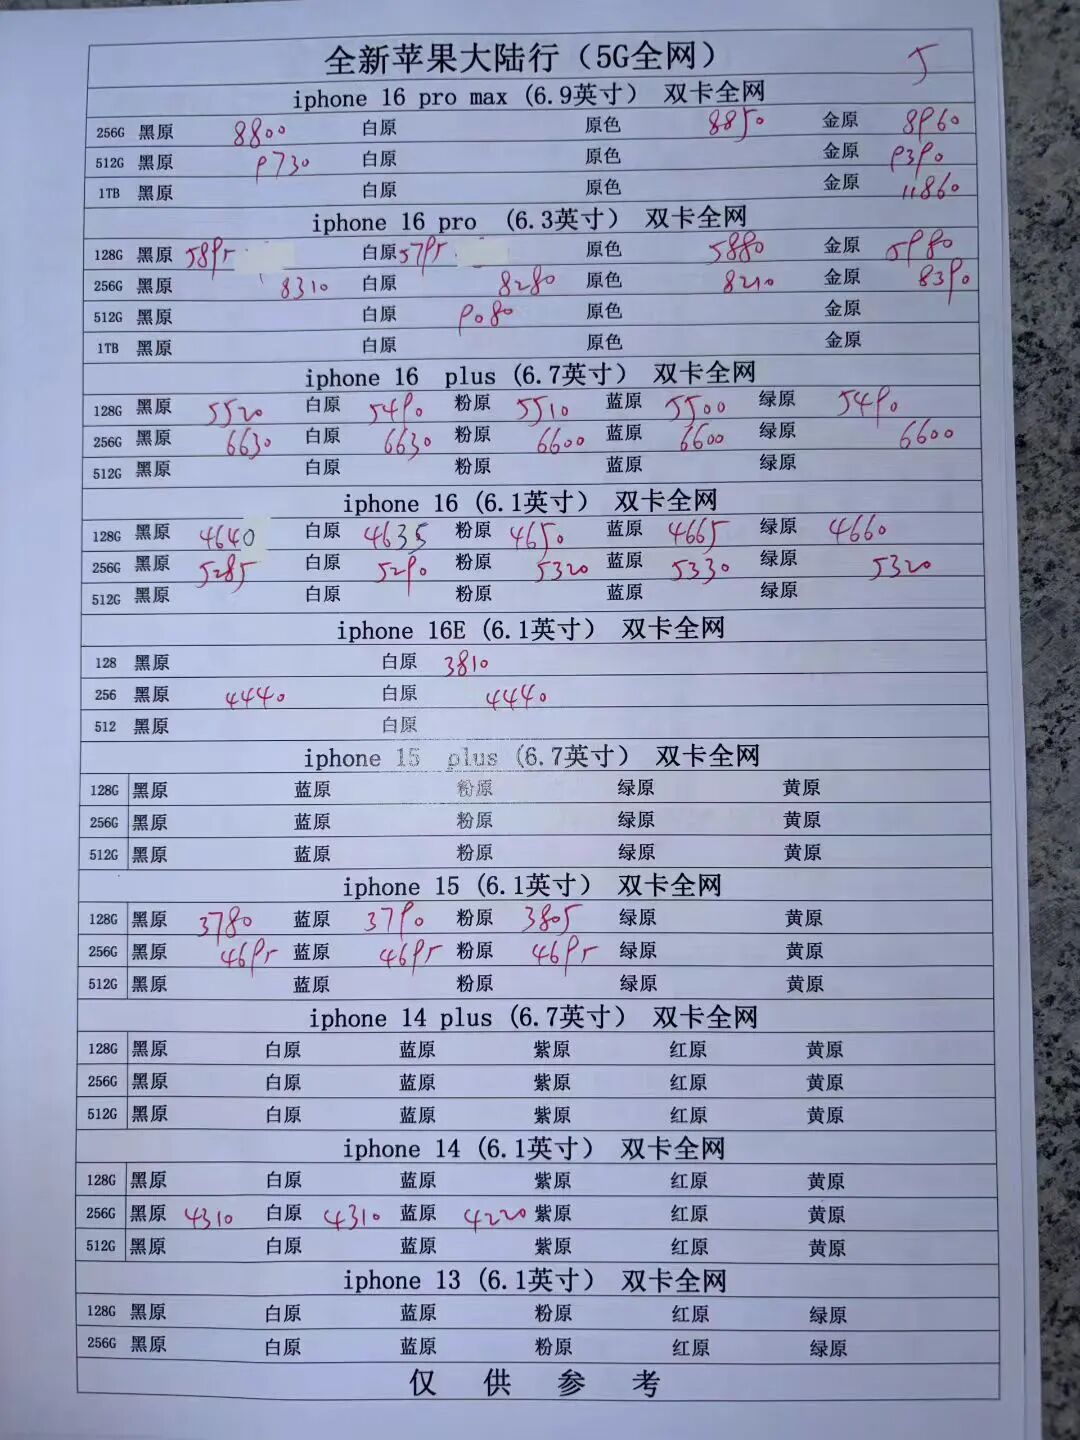 全新苹果大陆行（5G全网） 5
iphone 16 pro max (6.9英寸) 双卡全网
256G 黑原 8800 白原 原色 8850 金原 8960
512G 黑原 9730 白原 原色 金原 9390
1TB 黑原 白原 原色 金原 11860
iphone 16 pro (6.3英寸) 双卡全网
128G 黑原 5895 白原 5795 原色 5880 金原 5980
256G 黑原 8310 白原 8280 原色 8210 金原 8390
512G 黑原 白原 9080 原色 金原
1TB 黑原 白原 原色 金原
iphone 16 plus (6.7英寸) 双卡全网
128G 黑原 5520 白原 5490 粉原 5510 蓝原 5500 绿原 5490
256G 黑原 6630 白原 6630 粉原 6600 蓝原 6600 绿原 6600
512G 黑原 白原 粉原 蓝原 绿原
iphone 16 (6.1英寸) 双卡全网
128G 黑原 4640 白原 4635 粉原 4650 蓝原 4665 绿原 4660
256G 黑原 5285 白原 5290 粉原 5320 蓝原 5330 绿原 5320
512G 黑原 白原 粉原 蓝原 绿原
iphone 16E (6.1英寸) 双卡全网
128 黑原 白原 3810
256 黑原 4440 白原 4440
512 黑原 白原
iphone 15 plus (6.7英寸) 双卡全网
128G 黑原 蓝原 粉原 绿原 黄原
256G 黑原 蓝原 粉原 绿原 黄原
512G 黑原 蓝原 粉原 绿原 黄原
iphone 15 (6.1英寸) 双卡全网
128G 黑原 3780 蓝原 3790 粉原 3805 绿原 黄原
256G 黑原 4695 蓝原 4695 粉原 4695 绿原 黄原
512G 黑原 蓝原 粉原 绿原 黄原
iphone 14 plus (6.7英寸) 双卡全网
128G 黑原 白原 蓝原 紫原 红原 黄原
256G 黑原 白原 蓝原 紫原 红原 黄原
512G 黑原 白原 蓝原 紫原 红原 黄原
iphone 14 (6.1英寸) 双卡全网
128G 黑原 白原 蓝原 紫原 红原 黄原
256G 黑原 4310 白原 4310 蓝原 4220 紫原 红原 黄原
512G 黑原 白原 蓝原 紫原 红原 黄原
iphone 13 (6.1英寸) 双卡全网
128G 黑原 白原 蓝原 粉原 红原 绿原
256G 黑原 白原 蓝原 粉原 红原 绿原
仅供参考